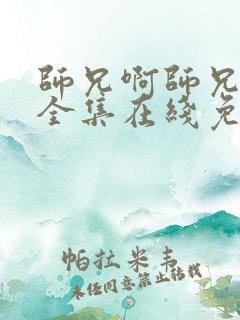 師兄啊師兄
全集在綫免
帕拉米韦
未经同意禁止转载